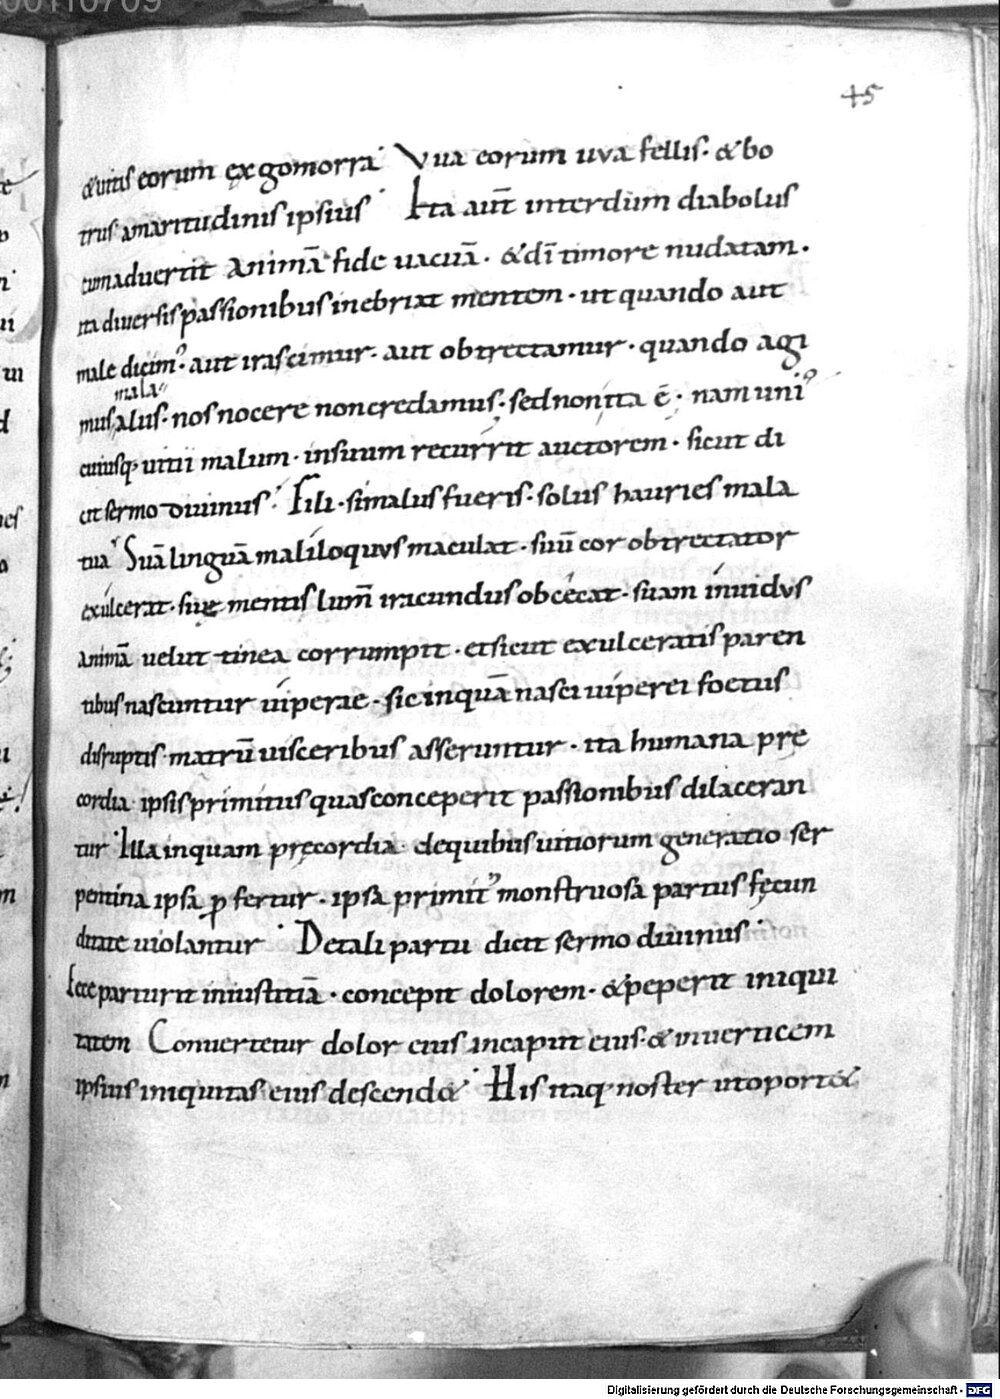 45
&uitis eorum exgomorra Vua eorum uva fellis· &bo
trus amaritudinis ipsius Ita aut̄ interdum diabolus
cum aduertit animā fide uacuā · &dī timore nudatam·
ita diuersis passionibus inebriat mentem · ut quando aut
male dicim᾽· aut irascimur· aut obtrectamur · quando agi
mala
mus alus· nos nocere non credamus· sed non ita ē · nam uni᾽
cuiusq; uitii malum · in suum recurrit auctorem · sicut di
cit sermo diuinus Fili · si malus fueris · solus hauries mala
tua Suā linguā maliloquus maculat · suū cor obtrectator
exulcerat· sue mentis lum̄ iracundus obcecat · suam inuidus
animā uelut tinea corrumpit · etsicut exulceratis paren
tibus nascuntur uiperae · sic inquā nasci uiperei foetus
disruptis matrū uisceribus asseruntur · ita humana prę
cordia ipsis primitus quas conceperit passionibus dilaceran
tur Illa inquam pręcordia dequibus uitiorum generatio ser
pentina ipsa ꝓfertur · ipsa primit᾽ monstruosa partus fęcun
ditate uiolantur Detali partu dicit sermo diuinus
Ecce parturit iniustitiā · concepit dolorem · &peperit iniqui
tatem Conuertetur dolor eius incaput eius· & inuerticem
ipsius iniquitas eius descend& His itaq· noster utoport&
Digitalisierung gefördert durch die Deutsche Forschungsgemeinschaft - DFG